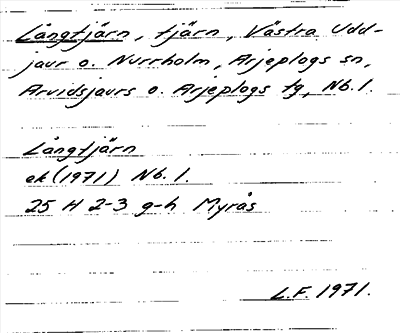 Långtjärn, tjärn, Västra Udd-
jaur o. Nurrholm, Arjeplogs sn,
Arvidsjaurs o. Arjeplogs tg, Nb. l.
Långtjärn
ek (1971) Nb. l.
25 H 2-3 g-h Myrås
L.F. 1971.